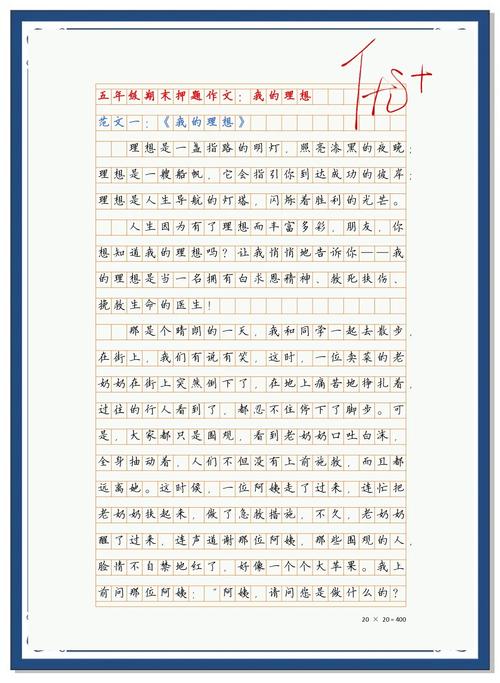 五年级期末押题作文：我的理想
范文一：《我的理想》
理想是一盏指路的明灯，照亮漆黑的夜晚；
理想是一艘船帆，它会指引你到达成功的彼岸；
理想是人生导航的灯塔，闪烁着胜利的光芒。
人生因为有了理想而丰富多彩，朋友，你
想知道我的理想吗？让我悄悄地告诉你——我
的理想是当一名拥有白求恩精神、救死扶伤、
挽救生命的医生！
那是个晴朗的一天，我和同学一起去散步，
在街上，我们有说有笑，这时，一位卖菜的老
奶奶在街上突然倒下了，在地上痛苦地挣扎着，
过往的行人看到了，都忍不住停下了脚步。可
是，大家都只是围观，看到老奶奶口吐白沫，
全身抽动着，人们不但没有上前施救，而且都
远离她。这时候，一位阿姨走了过来，连忙把
老奶奶扶起来，做了急救措施，不久，老奶奶
醒了过来，连声道谢那位阿姨，那些围观的人，
脸情不自禁地红了，好像一个个大苹果。我上
前问那位阿姨：“阿姨，请问您是做什么的？
20 × 20=400